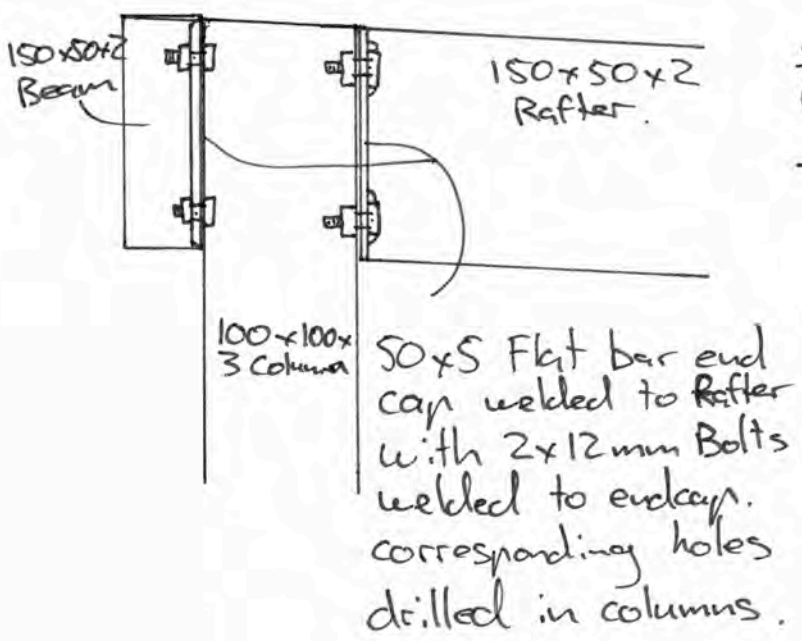 150x50x2
Beam
150x50x2
Rafter.
100x100x
3 Column
50x5 Flat bar end
cap welded to Rafter
with 2x12mm Bolts
welded to endcap.
corresponding holes
drilled in columns.